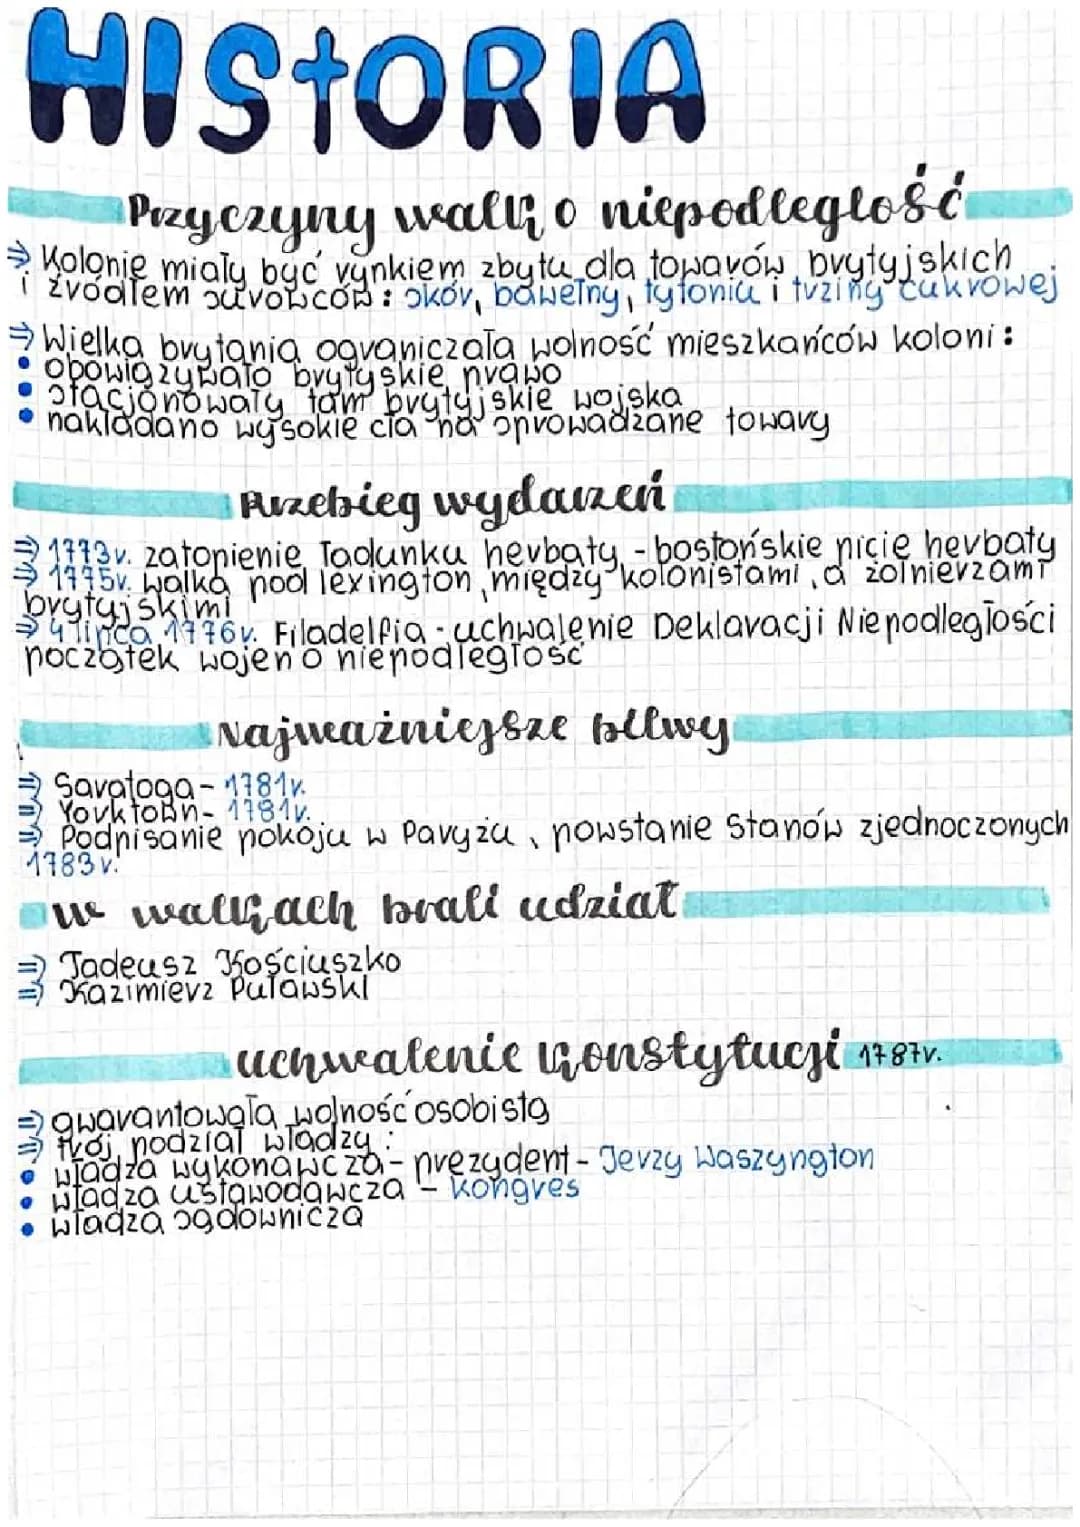 HIStORIA
Przyczyny walk o niepodległość
⇒ Kolonie miały być rynkiem zbytu dla towarów brytyjskich
i źródłem surowców: skór, bawełny, tytoniu i trziny cukrowej
⇒ Wielka brytania ograniczała wolność mieszkańców koloni:
• obowiązywało brytyskie prawo
• stacjonowały tam brytyjskie wojska
• nakładano wysokie cła na sprowadzane towary
Przebieg wydarzeń
⇒ 1773r. zatopienie ładunku herbaty - bostońskie picie herbaty
⇒ 1775r. walka pod lexington, między kolonistami, a żołnierzami
brytyjskimi
⇒ 4 lipca 1776r. Filadelfia - uchwalenie Deklaracji Niepodległości
początek wojen o niepodległość
Najważniejsze bitwy
⇒ Saratoga - 1781r.
⇒ Yorktown - 1781r.
⇒ Podpisanie pokoju w Paryżu, powstanie Stanów zjednoczonych
1783r.
w walkach brali udział
⇒ Tadeusz Kościuszko
⇒ Kazimierz Pułaski
uchwalenie konstytucji 1787r.
⇒ gwarantowała wolność osobistą
⇒ trój podział władzy:
• władza wykonawcza - prezydent - Jerzy Waszyngton
• władza ustawodawcza - kongres
• władza sądownicza